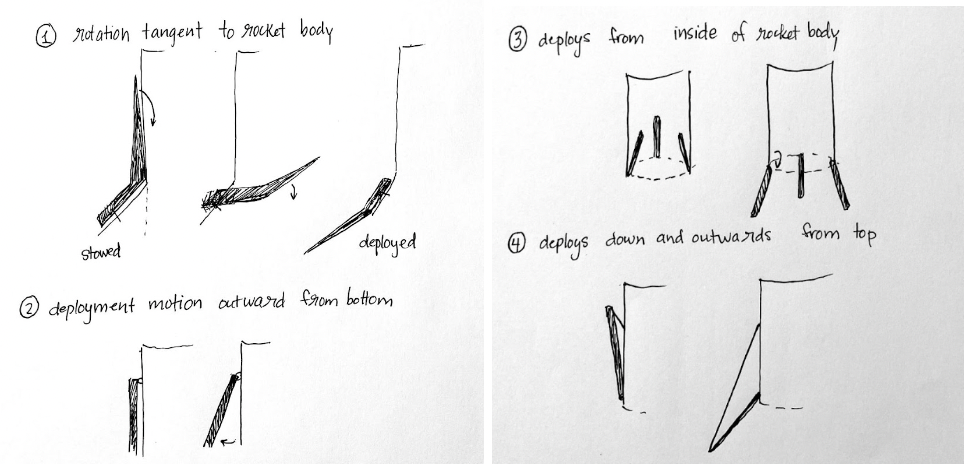 ① rotation tangent to rocket body
stowed
deployed
② deployment motion outward from bottom
③ deploys from inside of rocket body
④ deploys down and outwards from top